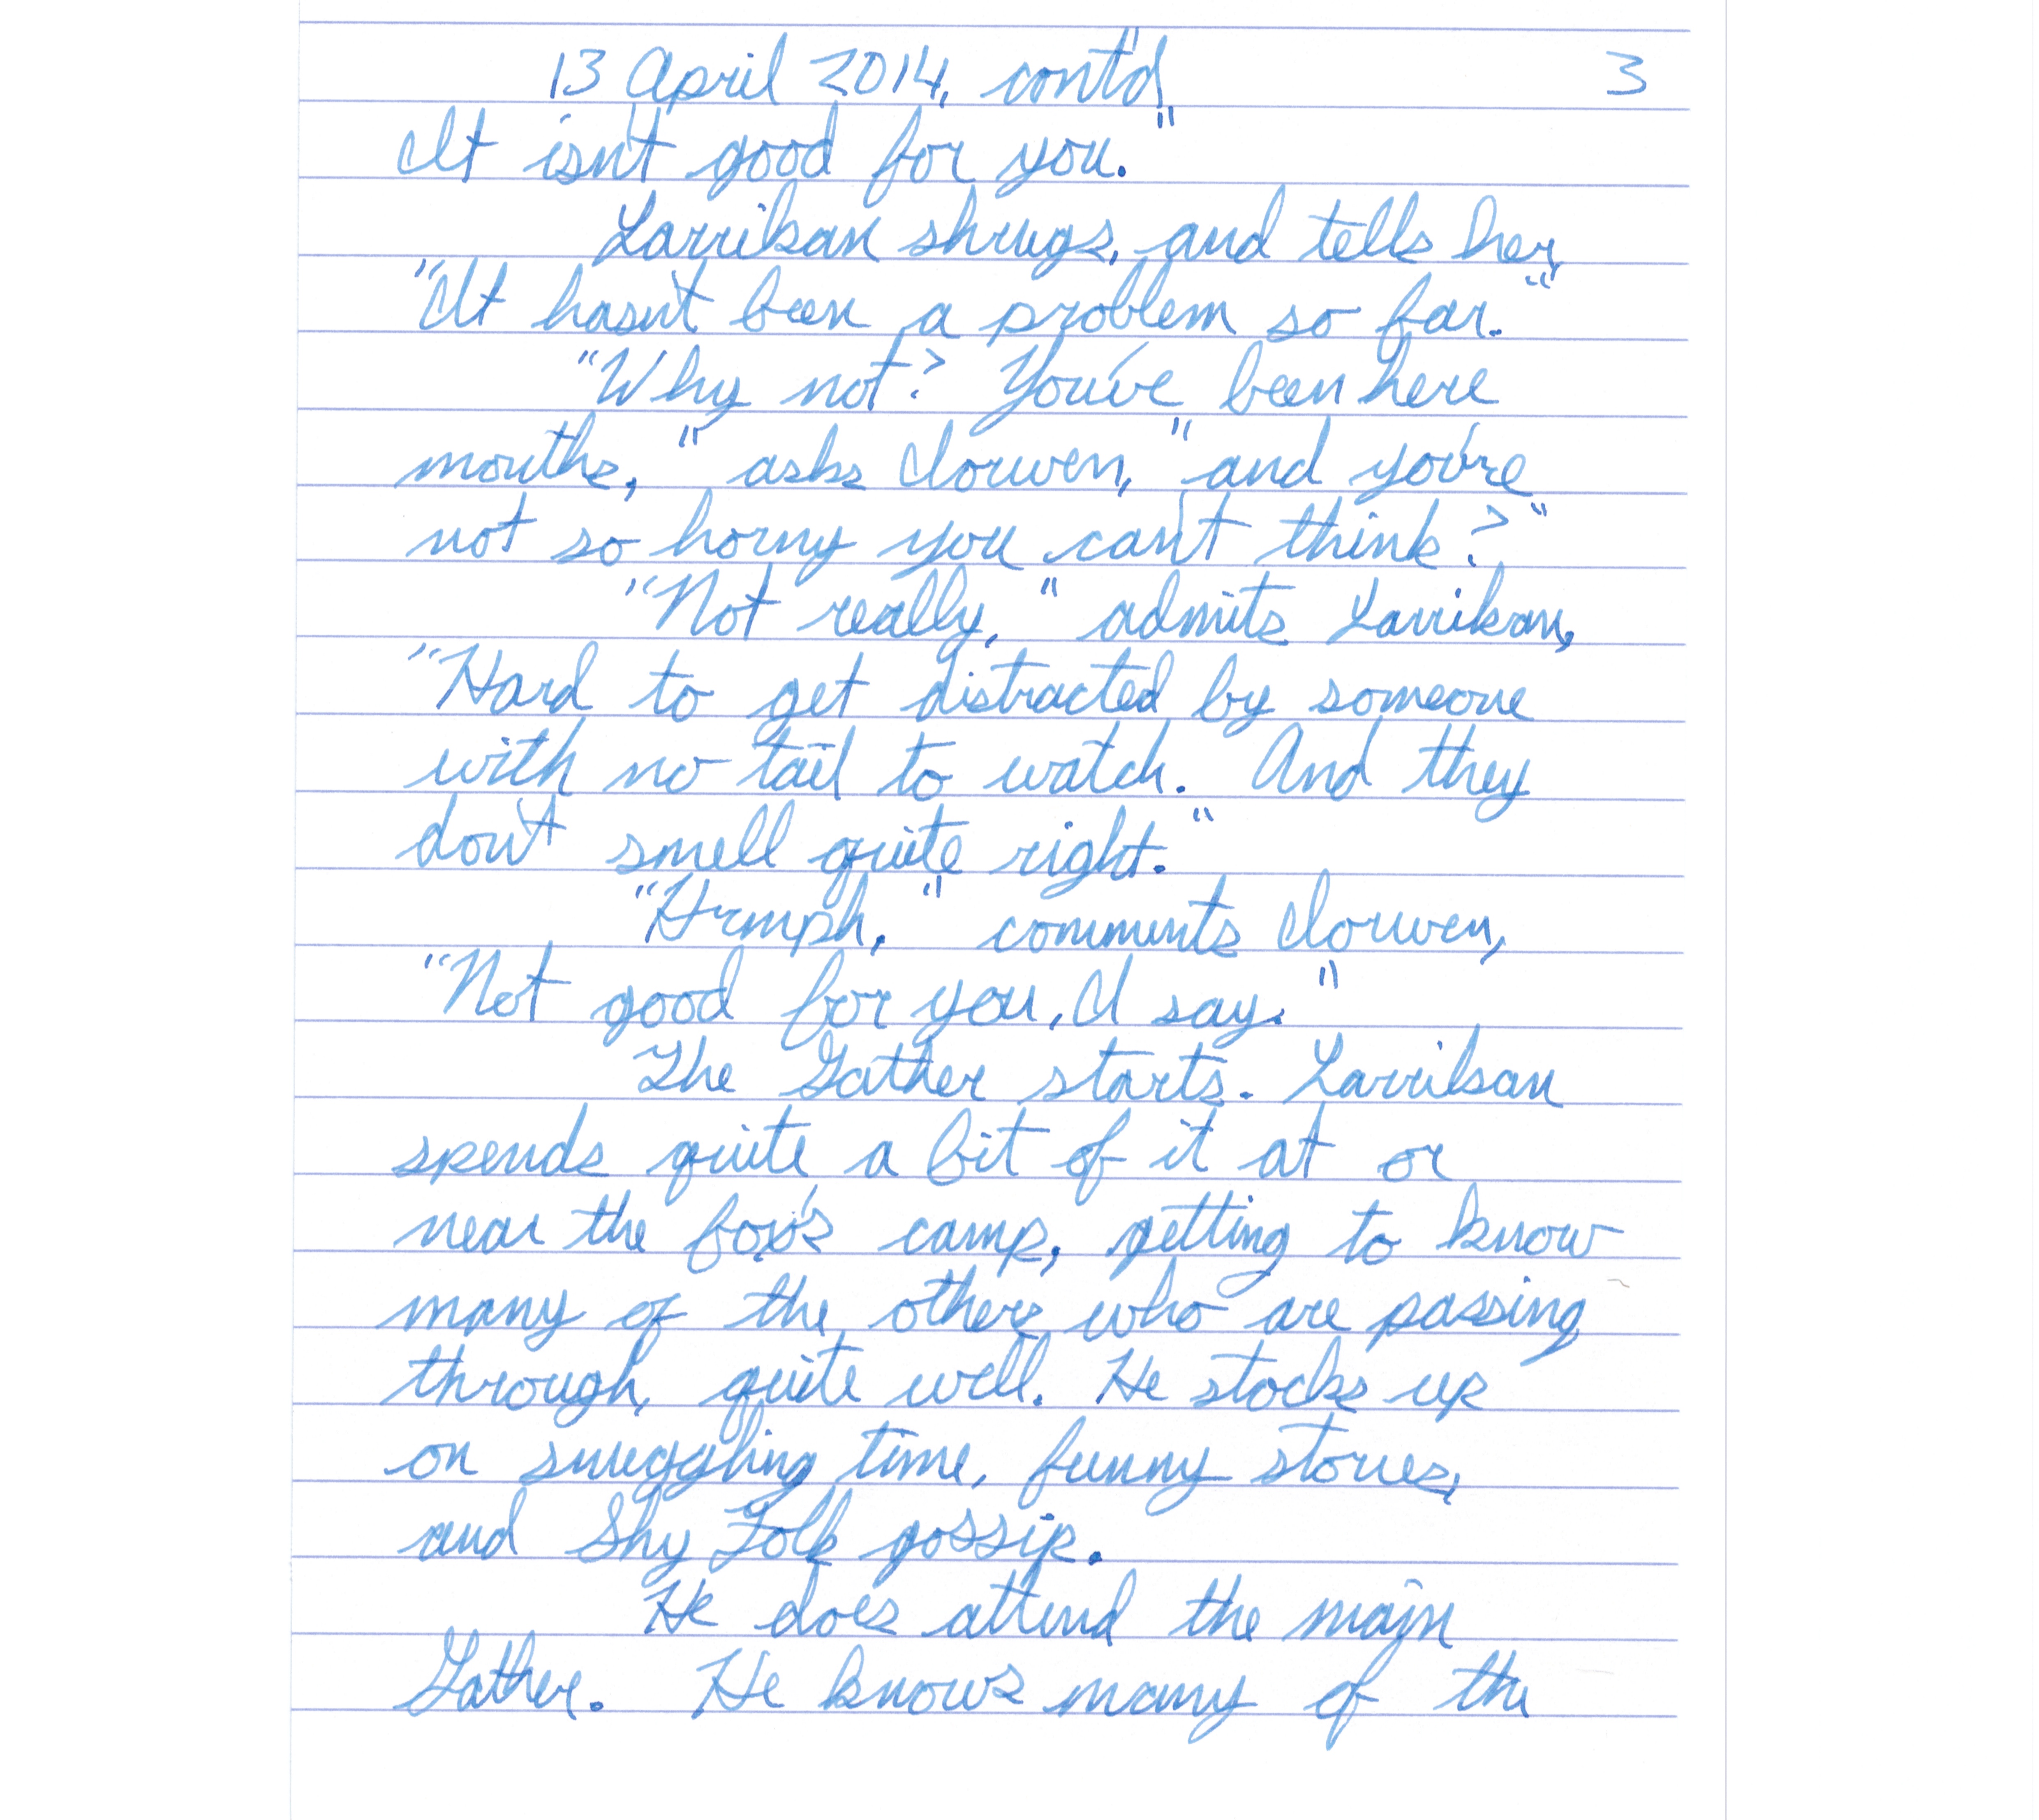 13 April 2014, cont'd. 3
It isn't good for you."
Larrikan shrugs, and tells her,
"It hasn't been a problem so far."
"Why not? You've been here
months," asks Iorwen, "and you're
not so horny you can't think?"
"Not really," admits Larrikan,
"Hard to get distracted by someone
with no tail to watch. And they
don't smell quite right."
"Hrmph," comments Iorwen,
"Not good for you, I say."
The Gather starts. Larrikan
spends quite a bit of it at or
near the fox's camp, getting to know
many of the others who are passing
through, quite well. He stocks up
on snuggling time, funny stories,
and Shy Folk gossip.
He does attend the main
Gather. He knows many of the